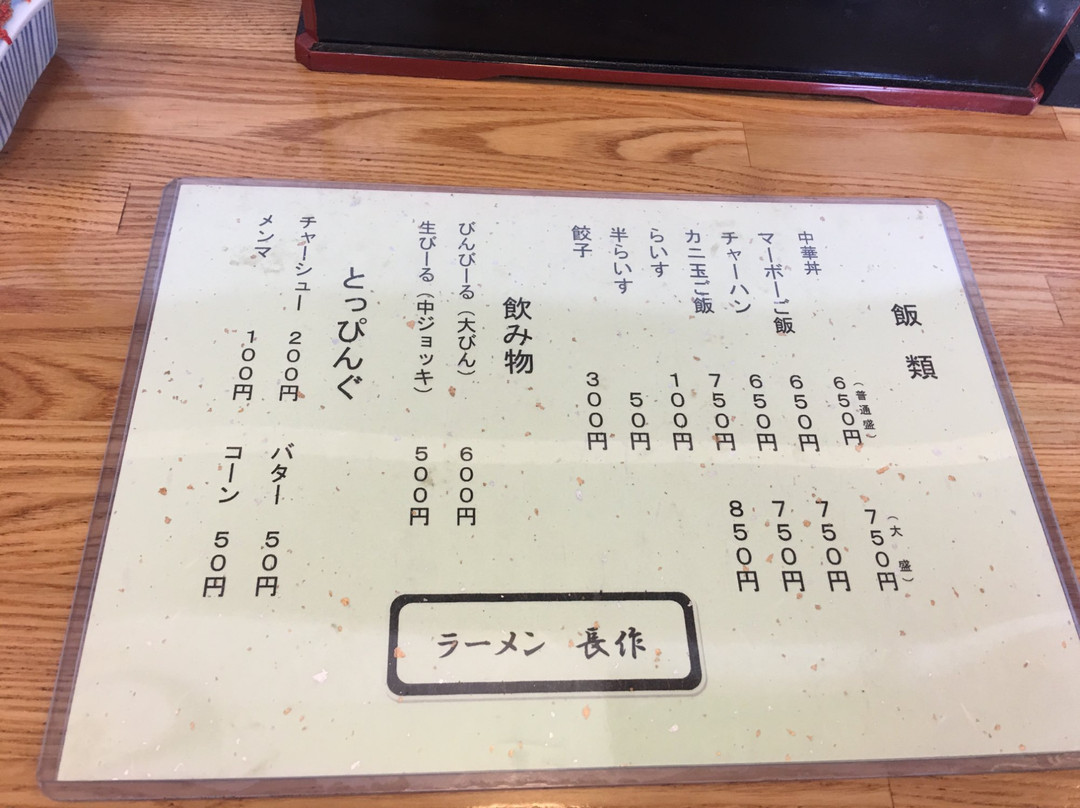 飯類
(普通盛) (大盛)
中華丼 650円 750円
マーボーご飯 650円 750円
チャーハン 650円 750円
カニ玉ご飯 750円 850円
らいす 100円
半らいす 50円
餃子 300円
飲み物
びんびーる(大びん) 600円
生びーる(中ジョッキ) 500円
とっぴんぐ
チャーシュー 200円 バター 50円
メンマ 100円 コーン 50円
ラーメン 長作